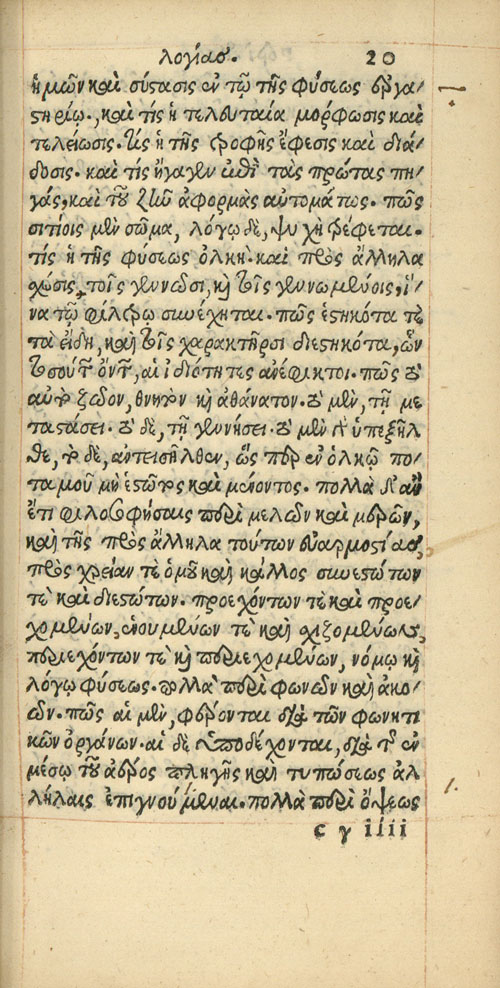 λογίας. 20
ἡμῶν καὶ σύστασις ἐν τῷ τῆς φύσεως ἐργα/
στηρίῳ., καὶ τίς ἡ τελευταία μόρφωσις καὶ
τελείωσις. τίς ἡ τῆς τροφῆς ἔφεσις καὶ διά/
δοσις. καὶ τίς ἤγαγεν ἐπὶ τὰς πρώτας πη/
γάς, καὶ τοῦ ζῆν ἀφορμὰς αὐτομάτως. πῶς
σιτίοις μὲν σῶμα, λόγῳ δὲ, ψυχὴ τρέφεται.
τίς ἡ τῆς φύσεως ὁλκὴ. καὶ πρὸς ἄλληλα
σχέσις, τοῖς γεννῶσι, κὶ τοῖς γεννωμένοις, ἵ/
να τῷ φίλτρῳ συνέχηται. πῶς ἑστηκότα τὲ
τὰ εἴδη, καὶ τοῖς χαρακτῆρσι διεστηκότα, ὧν
τοσούτων ὄντων, αἱ ἰδιότητες ἀνέφικτοι. πῶς τὸ
αὐτὸ ζῶον, θνητὸν κὶ ἀθάνατον. τὸ μὲν, τῇ με
ταστάσει. τὸ δὲ, τῇ γεννήσει. τὸ μὲν γὰρ ὑπεξῆλ
θε, τὸ δὲ, ἀντεισῆλθεν, ὥσπερ ἐν ὁλκῷ πο/
ταμοῦ μὴ ἑστῶτος καὶ μένοντος. πολλὰ δ' ἂν
ἔτι φιλοσοφήσαις περὶ μελῶν καὶ μερῶν,
καὶ τῆς πρὸς ἄλληλα τούτων εὐαρμοστίας,
πρὸς χρείαν τὲ ὁμοῦ καὶ κάλλος συνεστώτων
τὲ καὶ διεστώτων. προεχόντων τὲ καὶ προε/
χομένων, ἑνουμένων τὲ καὶ σχιζομένων,
περιεχόντων τὲ κὶ περιεχομένων, νόμῳ κὶ
λόγῳ φύσεως. πολλὰ περὶ φωνῶν καὶ ἀκο/
ῶν. πῶς αἱ μὲν, φέρονται διὰ τῶν φωνητι
κῶν ὀργάνων. αἱ δὲ ὑποδέχονται, διὰ τῆς ἐν
μέσῳ τοῦ ἀέρος πληγῆς καὶ τυπώσεως ἀλ
λήλαις ἐπιγνούμεναι. πολλὰ περὶ ὄψεως
c γ iiii